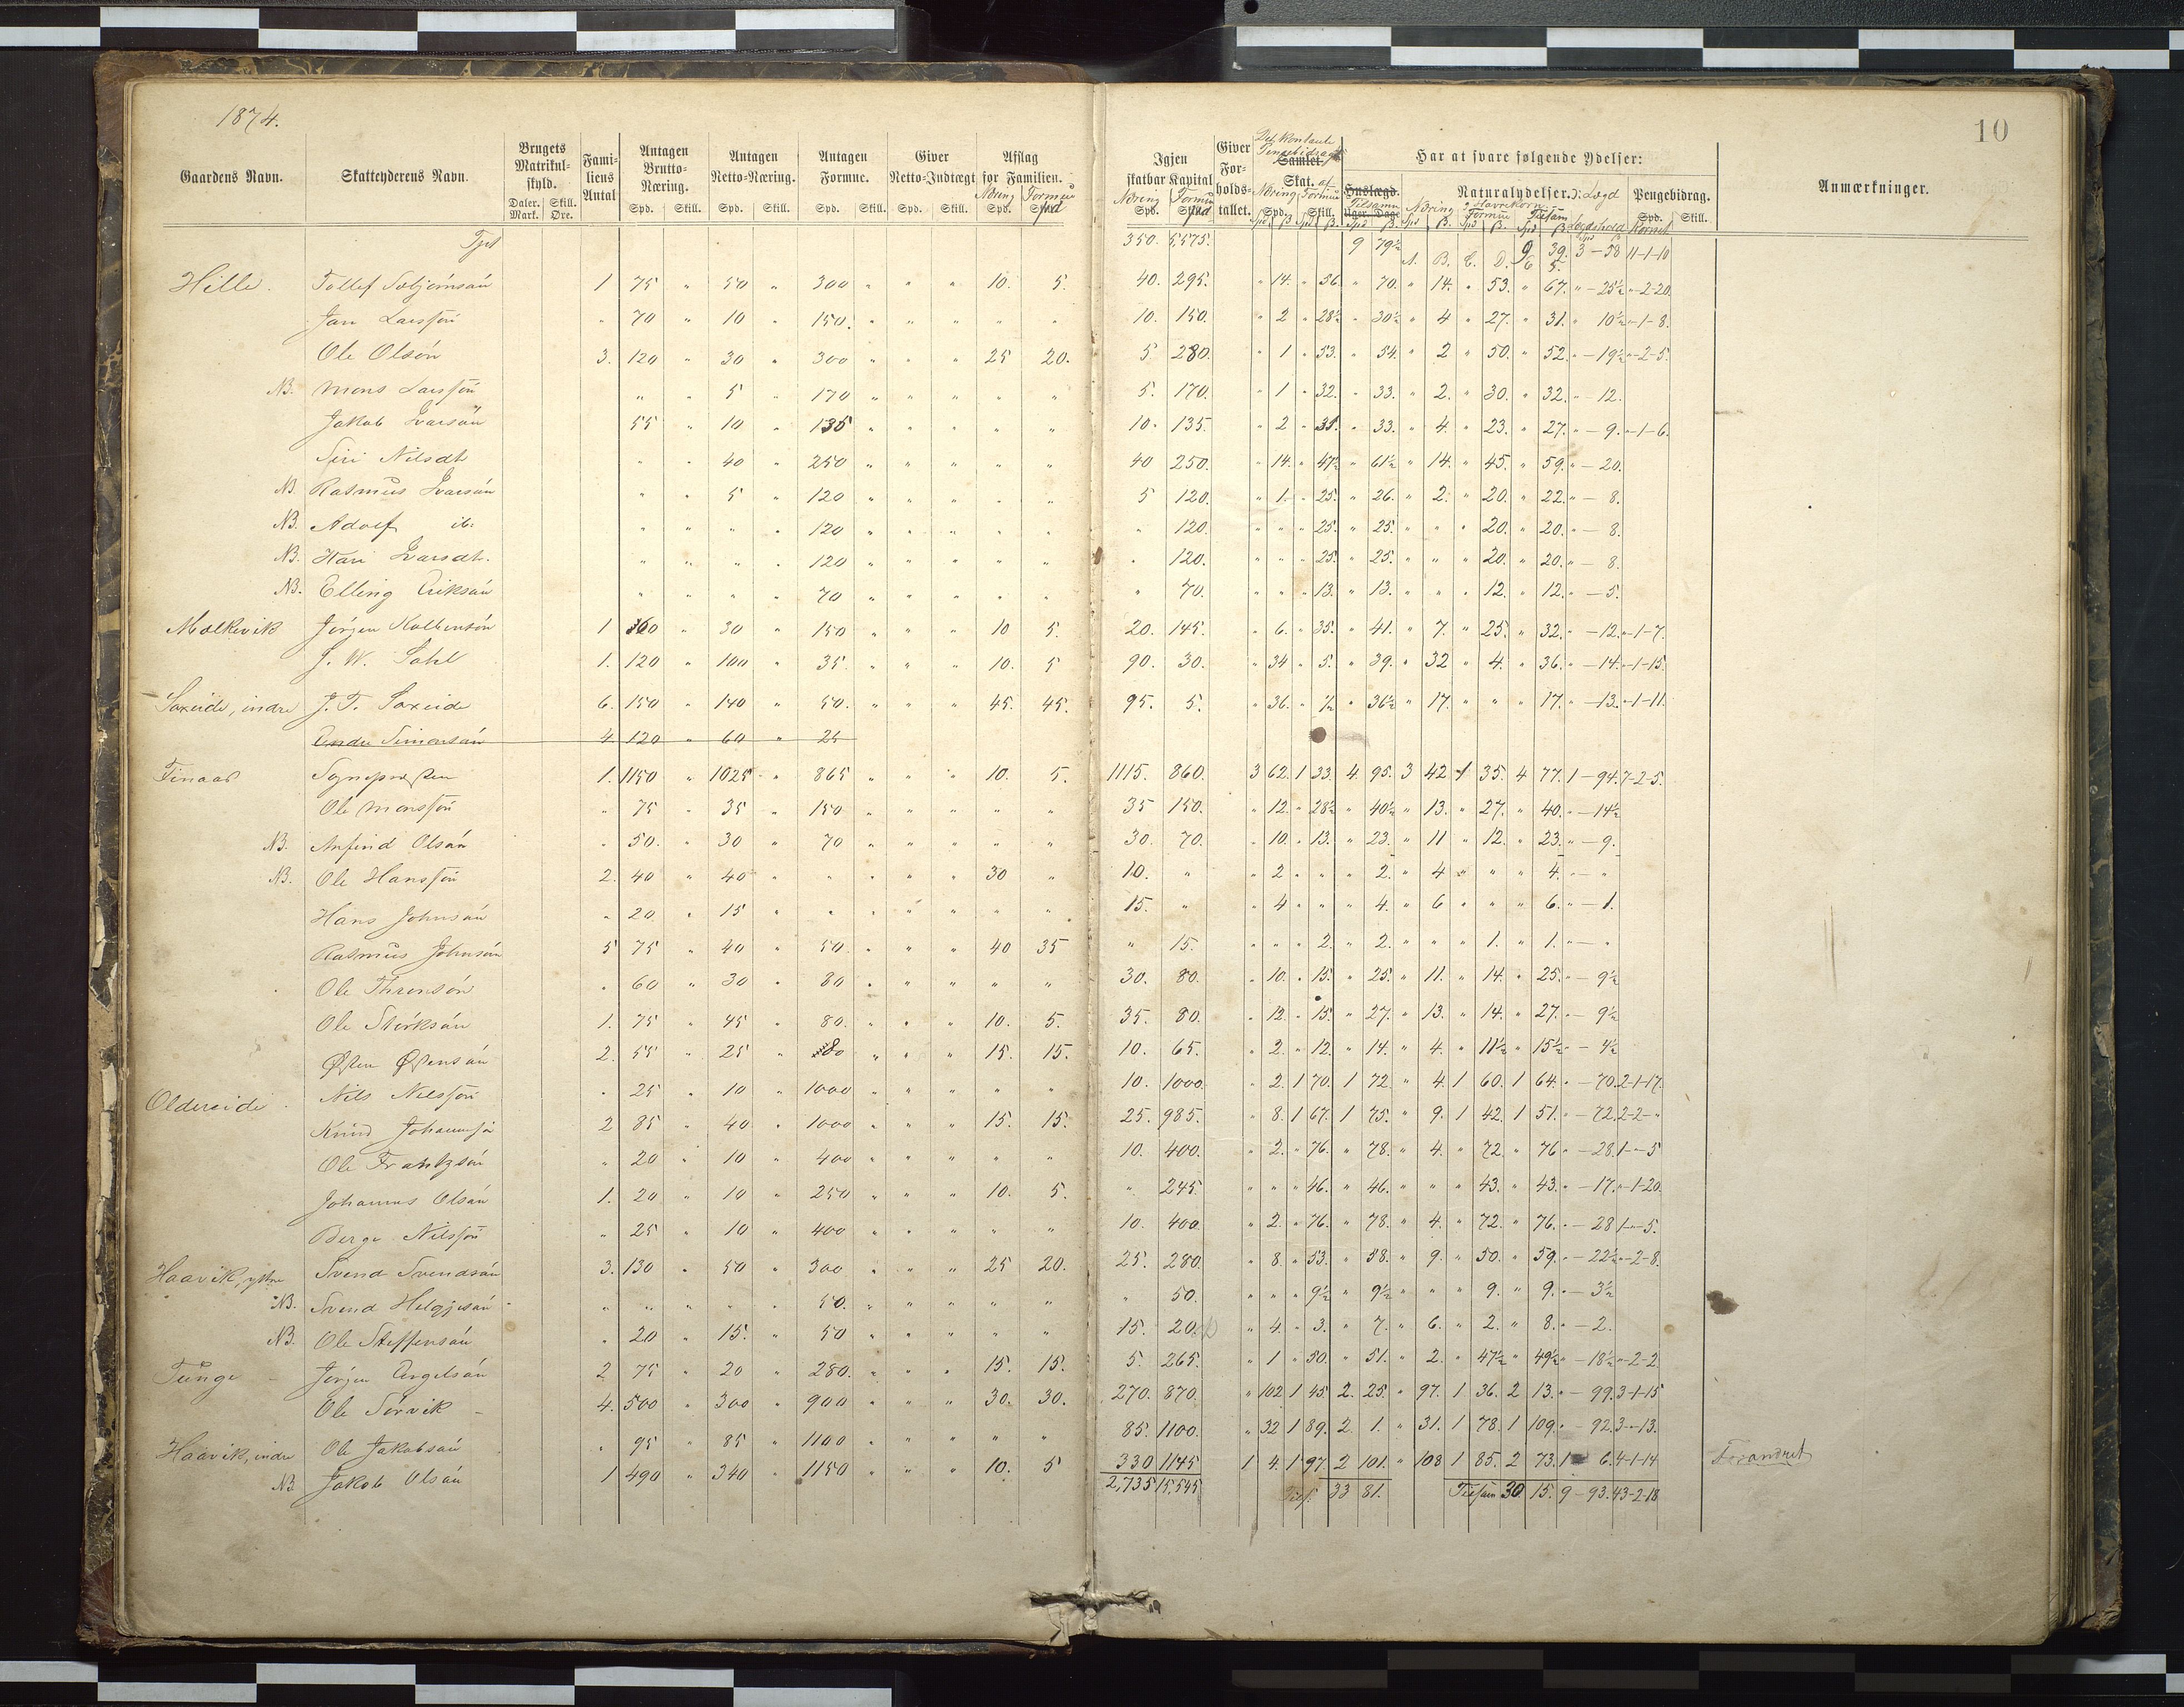 1874.
10
Gaardens Navn. Skatteyderens Navn. Brugets Matrikul-skyld. Daler. Mark. Skill. Øre. Familiens Antal Antagen Brutto-Næring. Spd. Skill. Antagen Netto-Næring. Spd. Skill. Antagen Formue. Spd. Skill. Giver Netto-Indtægt Spd. Skill. Afslag for Familien. Næring Spd. Formue Spd
Igjen skatbar Kapital Næring Spd. Formue Spd Giver For-holds-tallet. Samlet Skat. af Næring Formue Har at svare følgende Ydelser: Tilsamn Naturalydelser. Lægd Næring Formue Tilsam Pengebidrag. Spd. Skill. Kornet Anmærkninger.
350. 5575. 9 79½ A. B. C. D. 9 39. 3-58 11-1-10
6 5.
Hille. Tollef 1 75 " 50 " 300 " " " 10. 5. 40. 295. " 14. " 56. " 70. " 14. " 53. " 67. " - 25½ " -2-20.
Jan Larssön " 70 " 10 " 150. " " " " " 10. 150. " 2 " 28½ " 30½ " 4 " 27. " 31. " 10½ " -1-8.
Ole Olsón 3. 120 " 30 " 300 " " " 25 20. 5 280. " 1 " 53. " 54. " 2 " 50. " 52. " - 19½ " -2-5.
NB. Mons Larssön " " 5 " 170 " " " " " 5. 170. " 1 " 32. " 33. " 2. " 30. " 32. " - 12.
Jakob Ivarsön 55 " 10 " 135 " " " " " 10. 135. " 2 " 31. " 33. " 4. " 23. " 27. " - 9. " -1-6.
Siri Nilsdt " " 40 " 250 " " " " " 40 250. " 14. " 47½ " 61½ " 14. " 45. " 59. " - 20.
NB. Rasmus Ivarsón " " 5 " 120 " " " " " 5 120. " 1. " 25. " 26. " 2. " 20. " 22. " - 8.
NB. Adolf ib: " " " " 120 " " " " " " 120. " " " 25. " 25. " " " 20. " 20. " - 8.
NB. Kari Ivarsdt. " " " " 120 " " " " " " 120. " " " 25. " 25. " " " 20. " 20. " - 8.
NB. Elling Eriksón " " " " 70 " " " " " " 70. " " " 13. " 13. " " " 12. " 12. " - 5.
Molkevik Jörgen Kolbensón 1 360 " 30 " 150 " " " 10 5. 20. 145. " 6. " 35. " 41. " 7. " 25. " 32. " - 12. " -1-7.
J. W. Dahl 1. 120 " 100 " 35. " " " 10. 5 90. 30. " 34 " 5. " 39. " 32 " 4. " 36. " - 14. " -1-15.
Saxeide, indre J. T. Saxeide 6. 150 " 140 " 50. " " " 45. 45. 95. 5. " 36. " ½ " 36½ " 17. " " " 17. " - 13. " -1-11.
Endre Simonsón 4. 120 " 60 " 25
Finaas Sognepresten 1. 1150 " 1025 " 865 " " " 10. 5. 1115. 860. 3 62. 1 33. 4. 95. 3 42 1 35. 4 77. 1 - 94. 7-2-5.
Ole Monssön " 75 " 35 " 150 " " " " " 35 150. " 12. " 28½ " 40½ " 13. " 27. " 40. " - 14½
NB. Anfind Olsón " 50. " 30 " 70 " " " " " 30. 70. " 10. " 13. " 23. " 11 " 12. " 23. " - 9.
NB. Ole Hanssön 2. 40 " 40 " " " " " 30 " 10. " " 2 " " " 2. " 4 " " " 4. " - "
Hans Johnsón " 20. " 15 " " " " " " " 15. " " 4 " " " 4. " 6 " " " 6. " - 1.
Rasmus Johnsón 5 75 " 40 " 50. " " " 40 35 " 15. " " " 2. " 2. " " " 1. " 1. " - "
Ole Thronsón " 60 " 30 " 80 " " " " " 30. 80. " 10. " 15. " 25. " 11. " 14. " 25. " - 9½
Ole Störksón 1. 75 " 45 " 80. " " " 10. 5. 35. 80. " 12. " 15. " 27. " 13. " 14. " 27. " - 9½
Østen Østensón 2. 55 " 25 " 80 " " " 15. 15. 10. 65. " 2. " 12. " 14. " 4. " 11½ " 15½ " - 4½
Oldereide Nils Nilssön " 25 " 10 " 1000 " " " " " 10. 1000. " 2. 1 70. 1 72. " 4. 1 60. 1 64. " - 70. 2-1-17.
Knud Johannessön 2 85 " 40 " 1000 " " " 15. 15. 25. 985. " 8. 1 67. 1 75. " 9. 1 42. 1 51. " - 72. 2-2-"
Ole Frantzsön " 20 " 10 " 400 " " " " " 10. 400. " 2. " 76. " 78. " 4. " 72. " 76 " - 28. 1-"-5
Johannes Olsón 1. 20 " 10 " 250 " " " 10. 5. " 245. " " " 46. " 46. " " " 43. " 43. " - 17. " -1-20.
Berge Nilssön " 25 " 10 " 400 " " " " " 10. 400. " 2. " 76. " 78. " 4. " 72. " 76. " - 28 1-"-5.
Haavik, ytre Svend Svendsón 3. 130 " 50 " 300 " " " 25 20. 25. 280. " 8. " 53. " 58. " 9. " 50. " 59. " - 22½ " -2-8.
NB. Svend Helgjesón " " " " 50. " " " " " " 50. " " " 9½ " 9½ " " " 9. " 9. " - 3½
NB. Ole Steffensón " 20 " 15. " 50 " " " " " 15. 20. " 4. " 3. " 7. " 6. " 2. " 8. " - 2.
Tunge Jörgen Engelsón 2 75 " 20 " 280. " " " 15. 15. 5. 265. " 1 " 50. " 51. " 2. " 47½ " 49½ " - 18½ " -2-2.
Ole Sörvik 4. 500 " 300 " 900 " " " 30. 30. 270. 870. " 102 1 45. 2. 25. " 97. 1 36. 2 13. " - 99. 3-1-15
Haavik, indre Ole Jakobsón " 95 " 85 " 1100 " " " " " 85. 1100. " 32 1 89. 2 1. " 31. 1 78. 1 109. " - 92. 3-"-13.
NB. Jakob Olsón 1 490 " 340 " 1150 " " " 10. 5 330 1145 1 4. 1 97. 2 101. " 108 1 85. 2 73. 1 6. 4-1-14 Forandret
2,735 15,545 Tils. 33 81. Tilsam 30 15. 9-93. 43-2-18